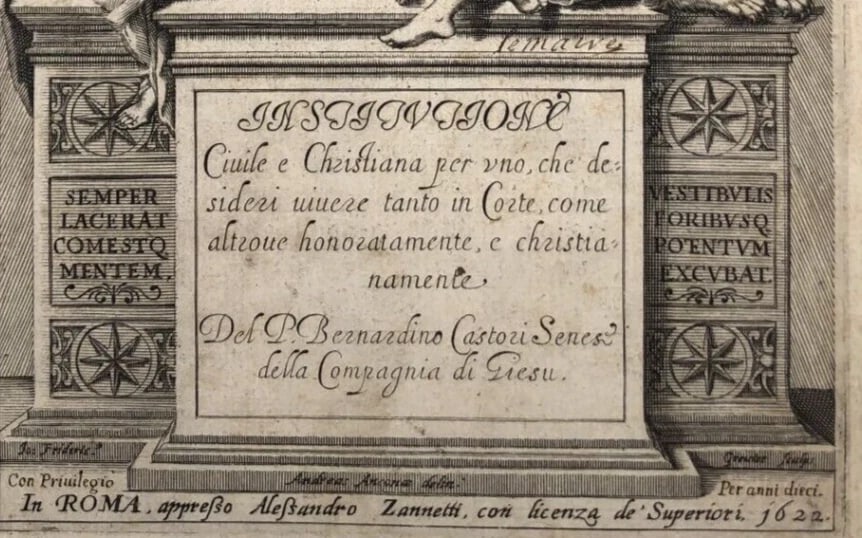 INSTITVTIONE
Ciuile e Christiana per vno, che de=
sideri uiuere tanto in Corte, come
altroue honoratamente, e christia=
namente
Del P. Bernardino Castori Senese
della Compagnia di Giesu.
SEMPER
LACERAT
COMESTQ
MENTEM.
VESTIBVLIS
FORIBVSQ
POTENTVM
EXCVBAT.
Io: Frideric.
Andreas Anconæ delin.
Greuter sculp.
Con Priuilegio
Per anni dieci.
In ROMA, appreſso Aleſsandro Zannetti, con licenza de' Superiori. 1622.